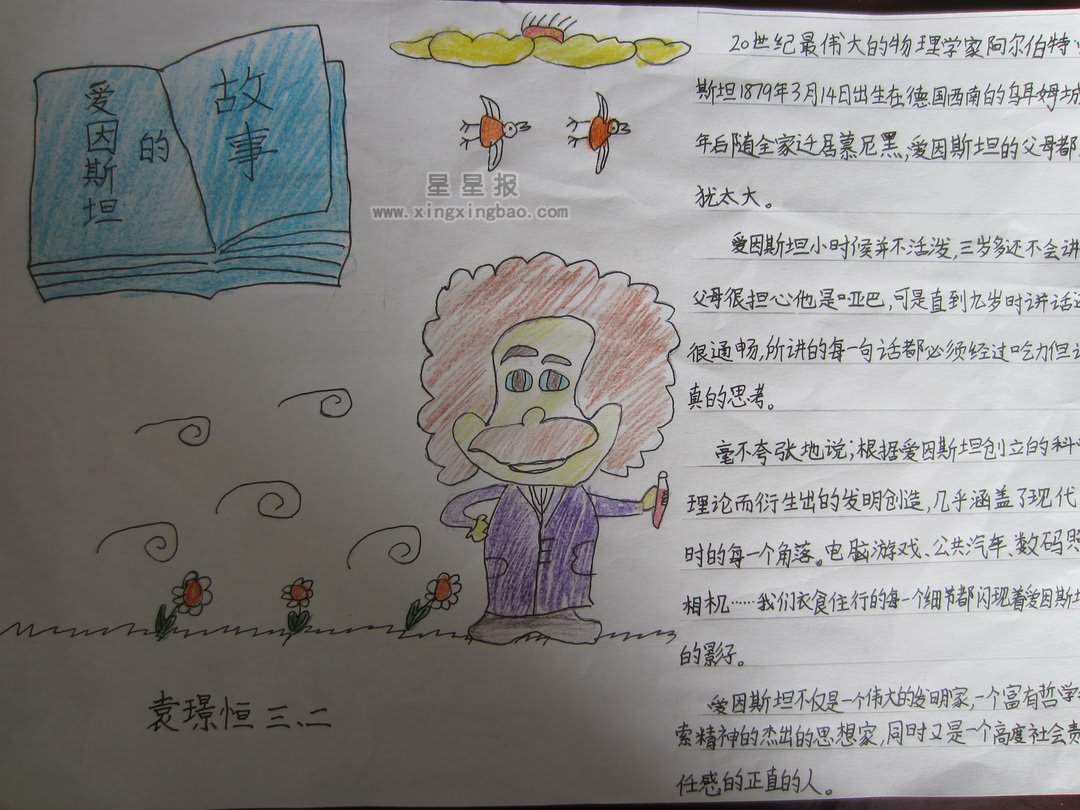 爱因斯坦
的
故事
星星报
www.xingxingbao.com
20世纪最伟大的物理学家阿尔伯特·
斯坦1879年3月14日出生在德国西南的乌耳姆城
年后随全家迁居慕尼黑,爱因斯坦的父母都
犹太大。
爱因斯坦小时候并不活泼,三岁多还不会讲
父母很担心他是哑巴,可是直到九岁时讲话
很通畅,所讲的每一句话都必须经过吃力但
真的思考。
毫不夸张地说;根据爱因斯坦创立的科
理论而衍生出的发明创造,几乎涵盖了现代
时的每一个角落。电脑游戏、公共汽车、数码照
相机……我们衣食住行的每一个细节都闪现着爱因斯坦
的影子。
爱因斯坦不仅是一个伟大的发明家,一个富有哲学
索精神的杰出的思想家,同时又是一个高度社会责
任感的正直的人。
袁璟恒 三、二